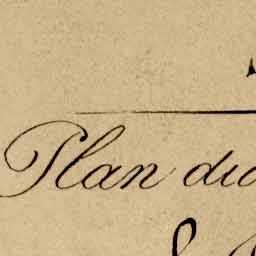 Plan du